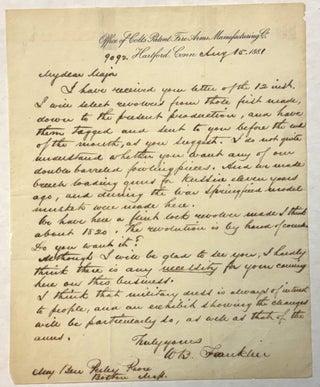 Office of Colt's Patent Fire Arms Manufacturing Co.
9092. Hartford, Conn Aug 15. 1881
My dear Major
I have received your letter of the 12 inst.
I will select revolvers from those first made,
down to the present production, and have
them tagged and sent to you before the end
of the month, as you suggest. I do not quite
understand whether you want any of our
double barreled fowling pieces. And we made
breech loading guns for Russia eleven years
ago, and during the war Springfield model
muskets were made here.
We have here a flint lock revolver made I think
about 1820. The revolution is by hand of course.
Do you want it?
Although I will be glad to see you, I hardly
think there is any necessity for your coming
here on this business.
I think that military dress is always of interest
to people, and an exhibit showing the changes
will be particularly so, as well as that of the
arms.
Truly yours
W. B. Franklin
Maj Ben Perley Poore
Boston Mass.